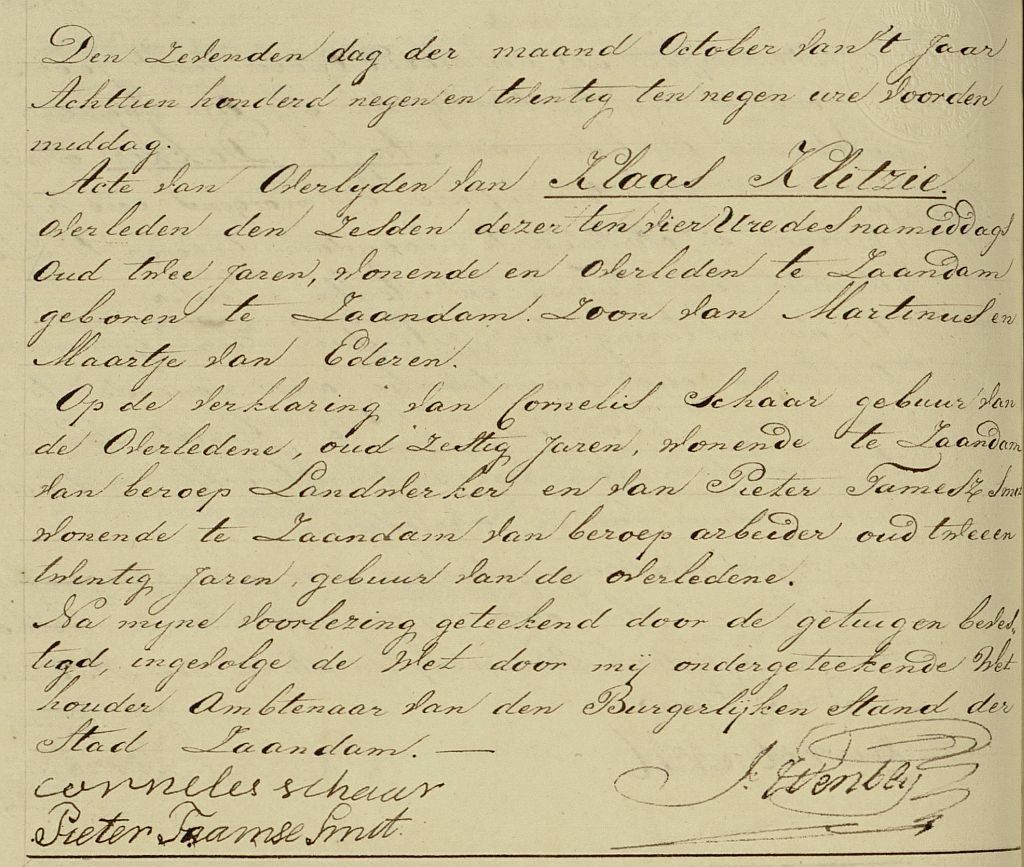 Den Zevenden dag der maand October van't Jaar
Achttien honderd negen en twintig ten negen ure voorden
middag.
Acte van Overlyden van Klaas Klitzie.
overleden den Zesden dezer ten vier Ure des namiddags
Oud twee Jaren, wonende en overleden te Zaandam
geboren te Zaandam. Zoon van Martinus en
Maartje van Ederen.
Op de verklaring van Cornelis Schaar gebuur van
de Overledene, oud zestig Jaren, wonende te Zaandam
van beroep Landwerker en van Pieter Tamesz Smit
wonende te Zaandam van beroep arbeider oud twee en
twintig Jaren, gebuur van de overledene.
Na myne voorlezing geteekend door de getuigen beves-
tigd, ingevolge de Wet door mij ondergeteekende Wet
houder Ambtenaar van den Burgerlijken Stand der
Stad Zaandam. —
corneles schaar
Pieter Taamse Smit.